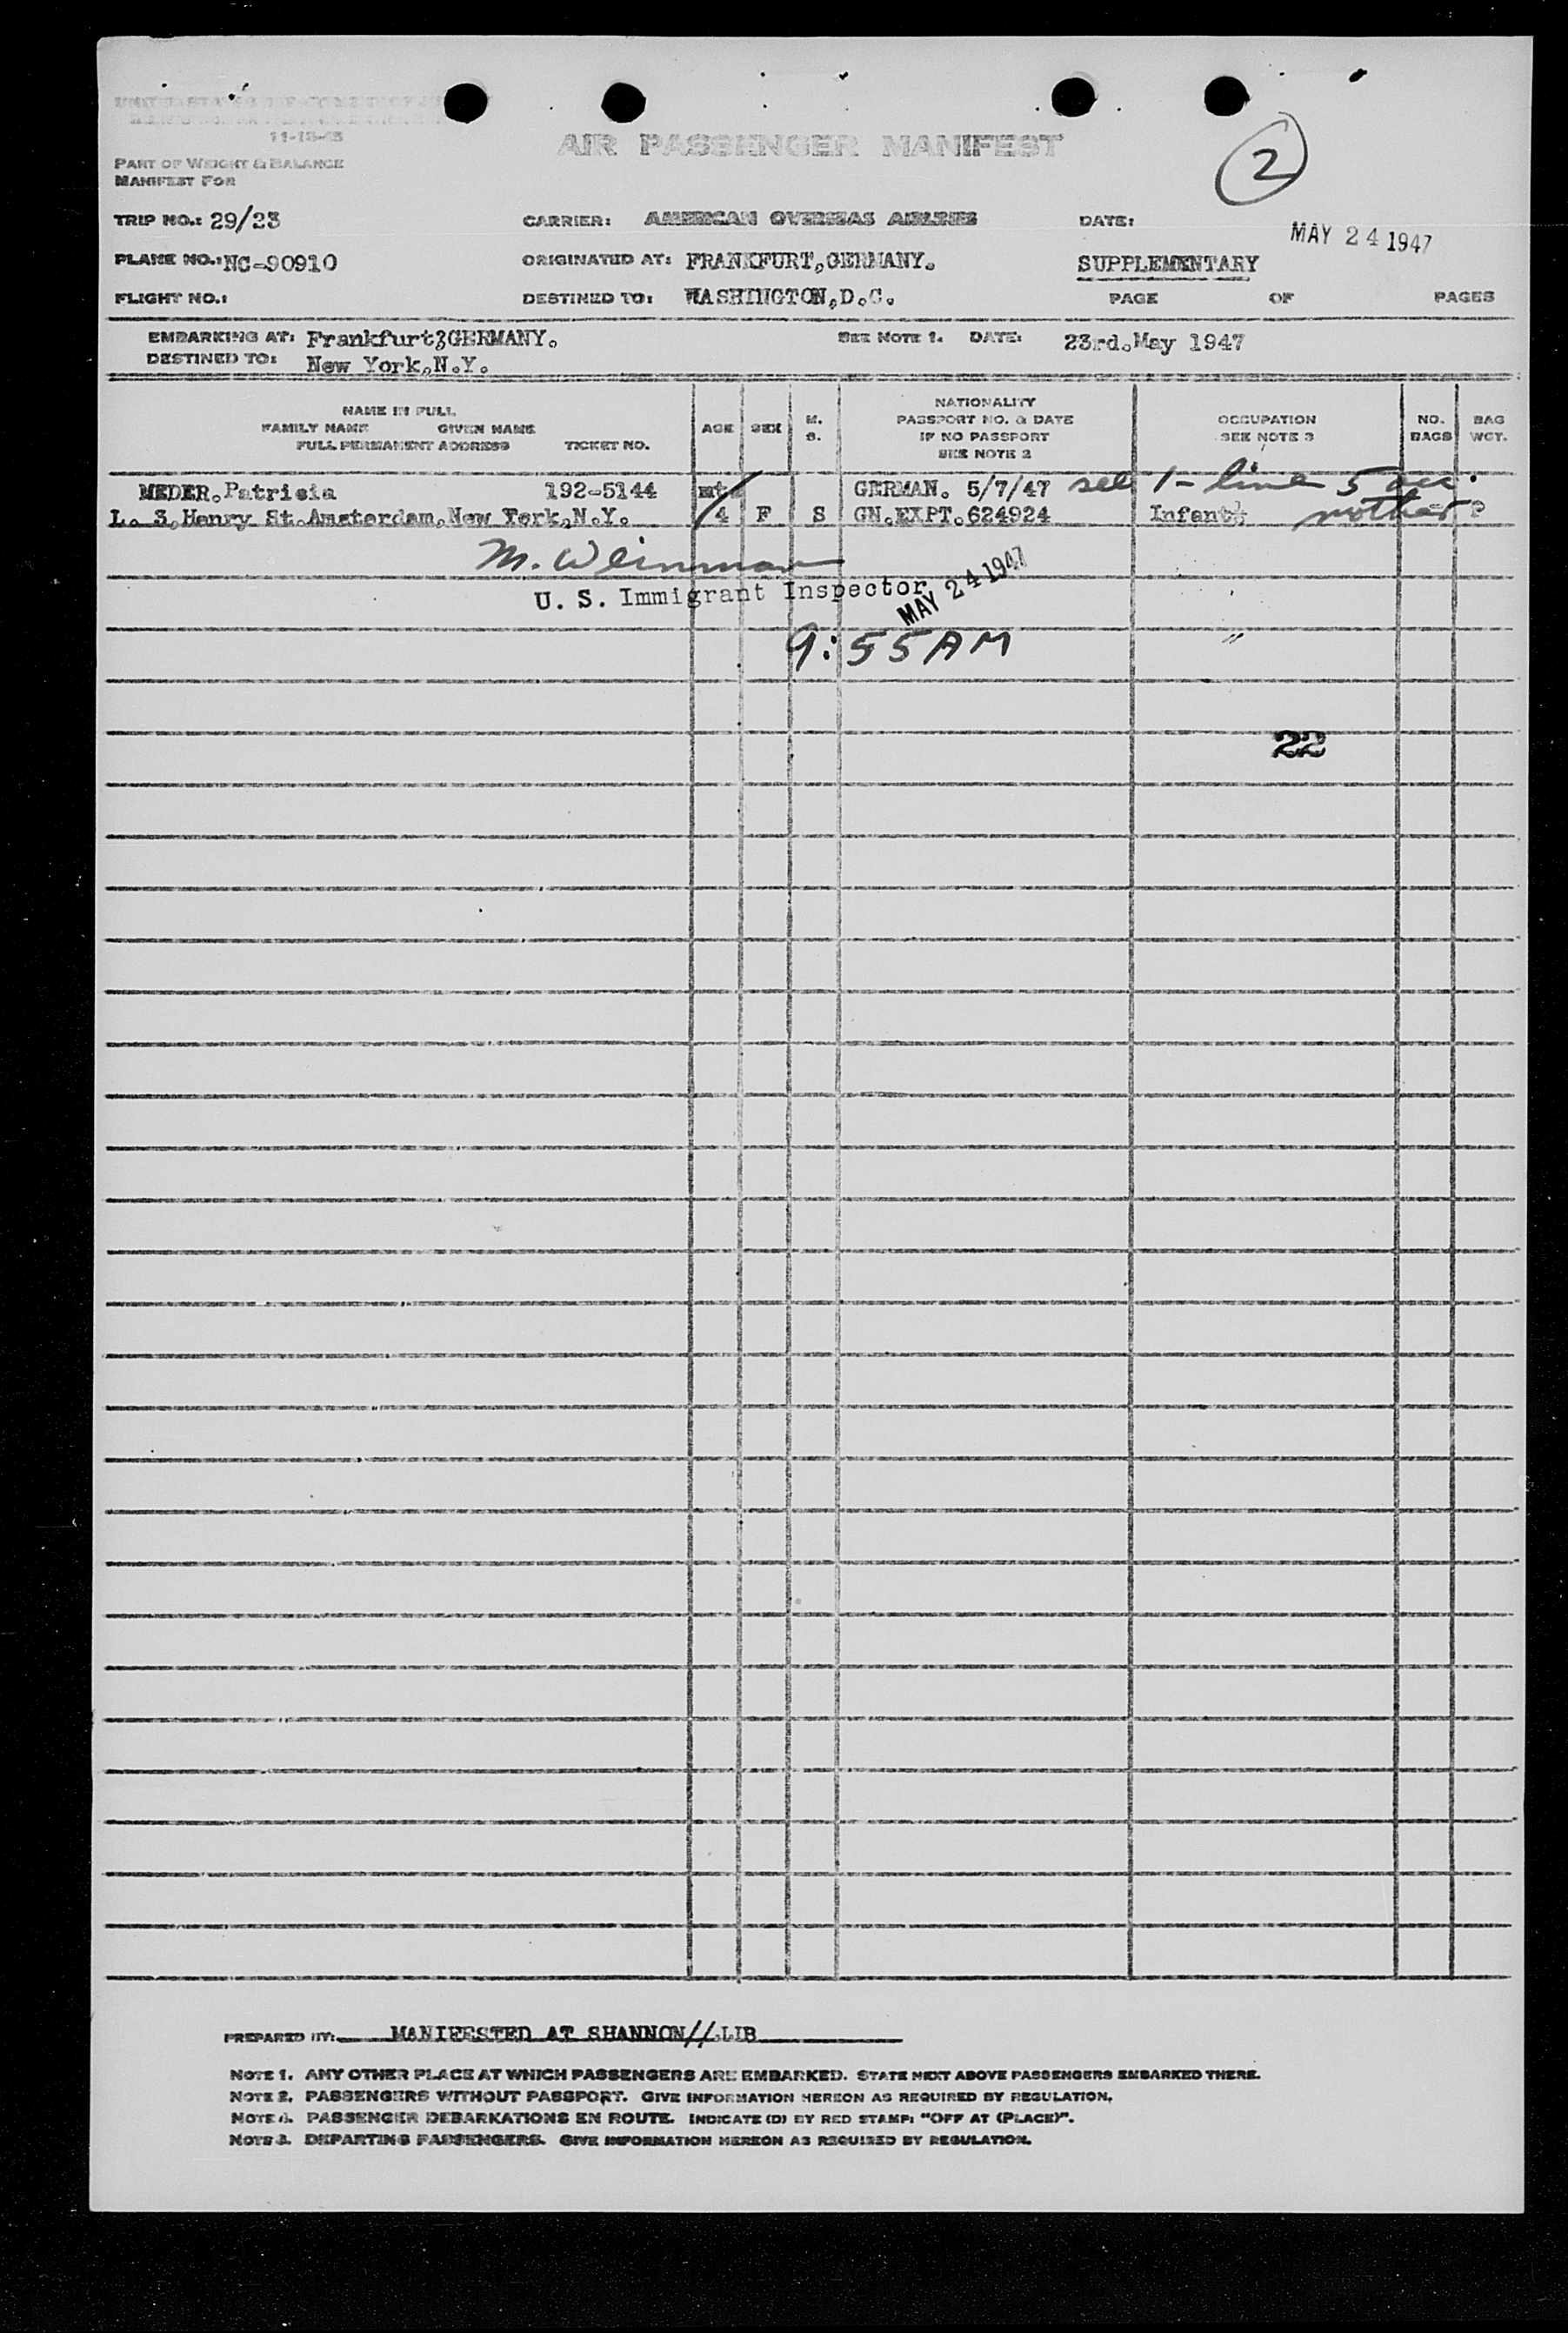 11-15-45
AIR PASSENGER MANIFEST
2
PART OF WEIGHT & BALANCE
MANIFEST FOR
TRIP NO.: 29/23 CARRIER: AMERICAN OVERSEAS AIRLINES DATE: MAY 24 1947
PLANE NO.: NC-90910 ORIGINATED AT: FRANKFURT,GERMANY. SUPPLEMENTARY
FLIGHT NO.: DESTINED TO: WASHINGTON,D.C. PAGE OF PAGES
EMBARKING AT: Frankfurt,GERMANY. SEE NOTE 1. DATE: 23rd.May 1947
DESTINED TO: New York,N.Y.
NAME IN FULL
FAMILY NAME GIVEN NAME
FULL PERMANENT ADDRESS TICKET NO.
AGE SEX M. S.
NATIONALITY
PASSPORT NO. & DATE
IF NO PASSPORT
SEE NOTE 2
OCCUPATION
SEE NOTE 3
NO. BAGS
BAG WGT.
MEDER.Patrisia 192-5144 mts GERMAN. 5/7/47 see 1- line 5 acc.
L. 3,Henry St.Amsterdam,New York,N.Y. 4 F S GN.EXPT.624924 Infant mother
M. Weinman
U. S. Immigrant Inspector MAY 24 1947
9:55 AM
22
PREPARED BY: MANIFESTED AT SHANNON//LIB
NOTE 1. ANY OTHER PLACE AT WHICH PASSENGERS ARE EMBARKED. STATE NEXT ABOVE PASSENGERS EMBARKED THERE.
NOTE 2. PASSENGERS WITHOUT PASSPORT. GIVE INFORMATION HEREON AS REQUIRED BY REGULATION.
NOTE PASSENGER DEBARKATIONS EN ROUTE. INDICATE (D) BY RED STAMP: "OFF AT (PLACE)".
NOTE 3. DEPARTING PASSENGERS. GIVE INFORMATION HEREON AS REQUIRED BY REGULATION.